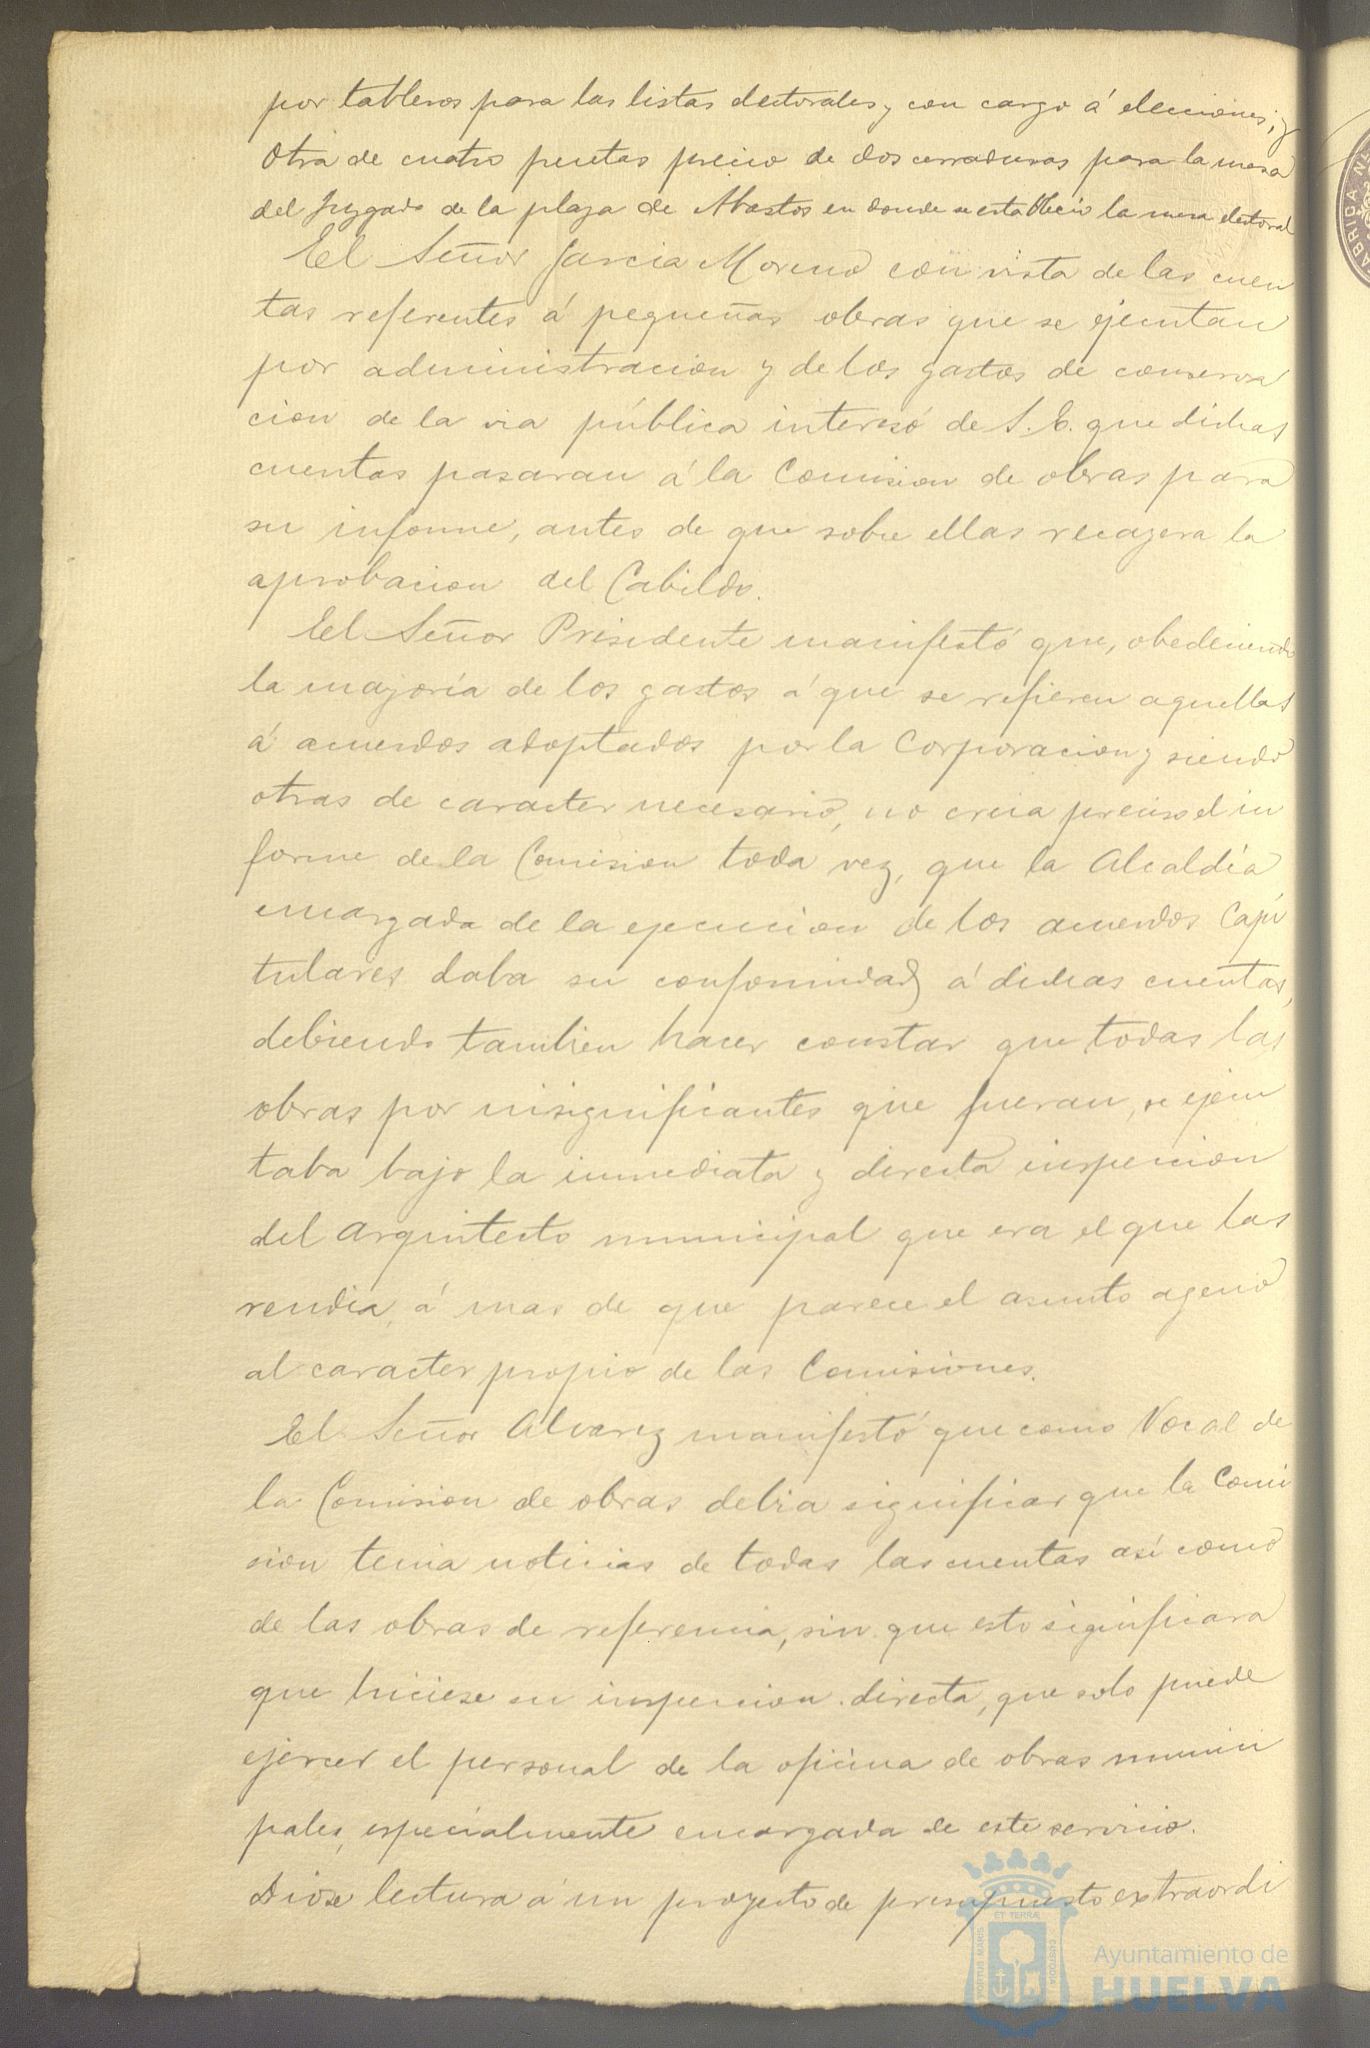 por tableros para las listas electorales y con cargo á elecciones; y
Otra de cuatro pesetas precio de dos cerraduras para la mesa
del Juzgado de la plaza de Abastos en donde se estableció la mesa electoral
El Señor Garcia Moreno con vista de las cuen
tas referentes á pequeñas obras que se ejecutan
por administracion y de los gastos de conserva
cion de la via pública interesó de S. E. que dichas
cuentas pasaran á la Comision de obras para
su informe, antes de que sobre ellas recayera la
aprobacion del Cabildo.
El Señor Presidente manifestó que, obedeciendo
la mayoría de los gastos á que se refieren aquellas
á acuerdos adoptados por la Corporacion y siendo
otras de caracter necesario, no creia preciso el in
forme de la Comision toda vez, que la Alcaldía
encargada de la ejecucion de los acuerdos Capi
tulares daba su conformidad á dichas cuentas,
debiendo tambien hacer constar que todas las
obras por insignificantes que fueran, se ejecu
taba bajo la inmediata y directa inspeccion
del Arquitecto municipal que era el que las
rendia, á mas de que parece el asunto ageno
al caracter propio de las Comisiones.
El Señor Alvarez manifestó que como Vocal de
la Comision de obras debia significar que la Comi
sion tenia noticias de todas las cuentas así como
de las obras de referencia, sin que esto significara
que hiciese su inspeccion directa, que solo puede
ejercer el personal de la oficina de obras munici
pales, especialmente encargada de este servicio.
Diose lectura á un proyecto de presupuesto extraordi
Ayuntamiento de
HUELVA